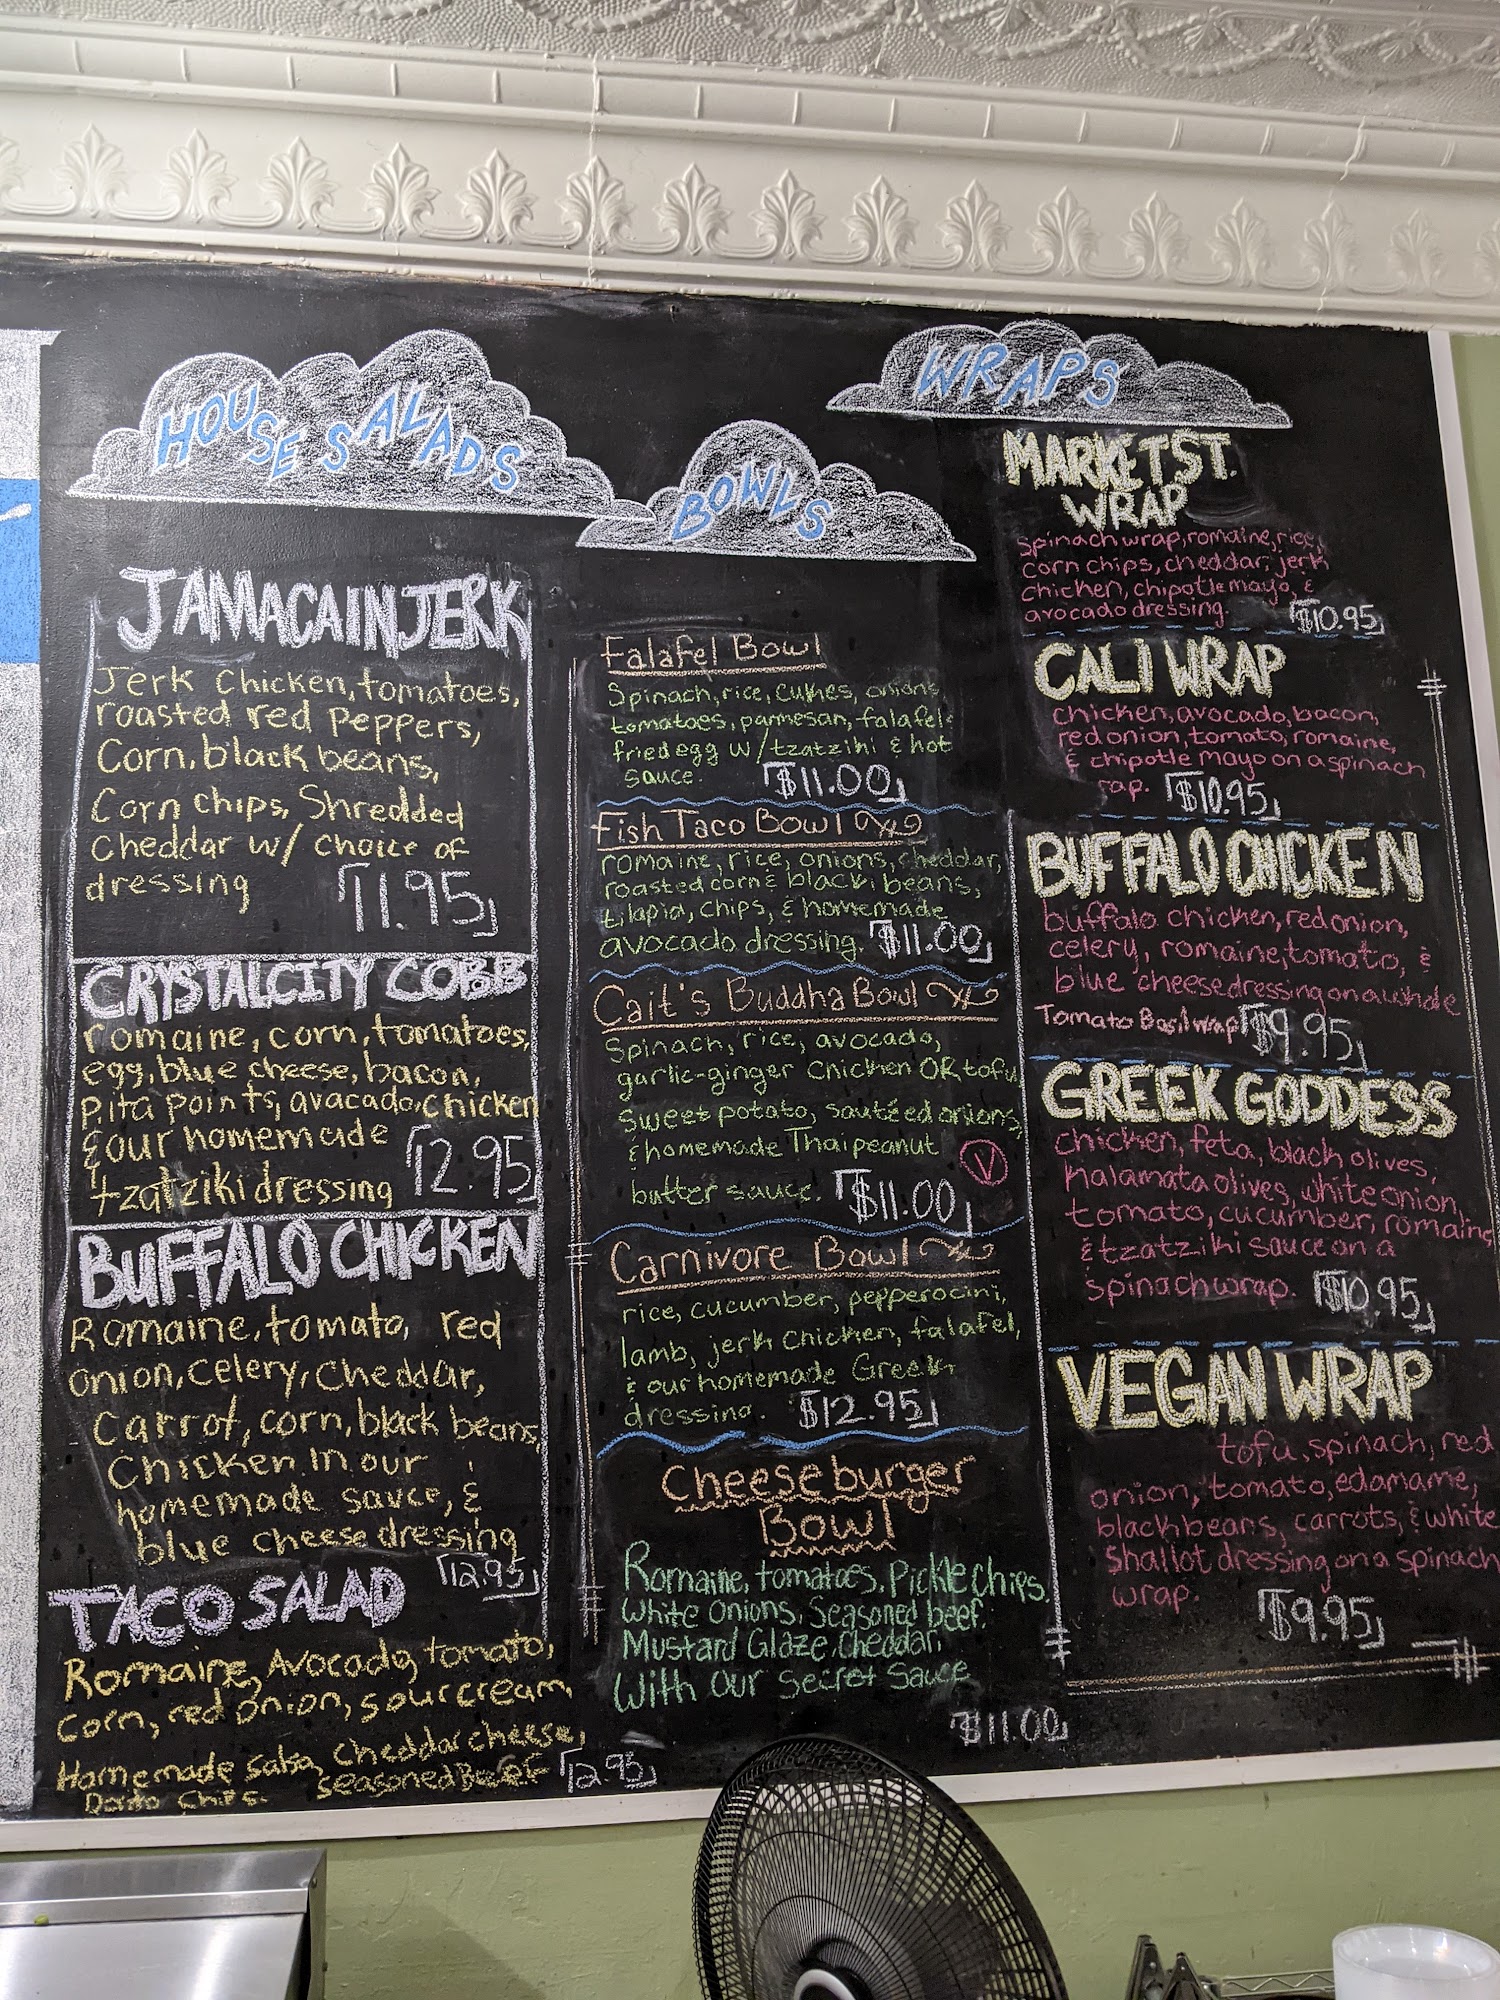 HOUSE SALADS
JAMACAIN JERK
Jerk Chicken, tomatoes,
roasted red Peppers,
Corn, black beans,
Corn chips, Shredded
Cheddar w/ choice of
dressing
11.95
CRYSTAL CITY COBB
romaine, corn, tomatoes,
egg, blue cheese, bacon,
pita points, avacado, chicken
& our homemade
tzatziki dressing
12.95
BUFFALO CHICKEN
Romaine, tomato, red
onion, celery, cheddar,
carrot, corn, black beans,
Chicken in our
homemade sauce, &
blue cheese dressing
12.95
TACO SALAD
Romaine, Avocado, tomato,
Corn, red onion, sour cream
Homemade Salsa, Cheddar cheese,
Seasoned Beef
Dorito Chips
12.95
BOWLS
Falafel Bowl
Spinach, rice, cukes, onions,
tomatoes, parmesan, falafel,
fried egg w/ tzatziki & hot
sauce.
$11.00
Fish Taco Bowl
romaine, rice, onions, cheddar,
roasted corn & black beans,
tilapia, chips, & homemade
avocado dressing. $11.00
Cait's Buddha Bowl
Spinach, rice, avocado,
garlic-ginger chicken OR tofu
sweet potato, sautéed onions,
& homemade Thai peanut
V
butter sauce. $11.00
Carnivore Bowl
rice, cucumber, pepperocini,
lamb, jerk chicken, falafel,
& our homemade Greek
dressing. $12.95
Cheeseburger
Bowl
Romaine, tomatoes, Pickle Chips,
White Onions, Seasoned beef,
Mustard Glaze, Cheddar,
With Our Secret Sauce
$11.00
WRAPS
MARKET ST.
WRAP
spinach wrap, romaine, rice,
corn chips, cheddar, jerk
chicken, chipotle mayo, &
avocado dressing. $10.95
CALI WRAP
chicken, avocado, bacon,
red onion, tomato, romaine,
& chipotle mayo on a spinach
rap. $10.95
BUFFALO CHICKEN
buffalo chicken, red onion,
celery, romaine, tomato, &
blue cheese dressing on a whole
Tomato Basil wrap $9.95
GREEK GODDESS
chicken, feta, black olives,
Kalamata olives, white onion,
tomato, cucumber, romaine
& tzatziki sauce on a
spinach wrap. $10.95
VEGAN WRAP
tofu, spinach, red
onion, tomato, edamame,
black beans, carrots, & white
Shallot dressing on a spinach
wrap.
$9.95